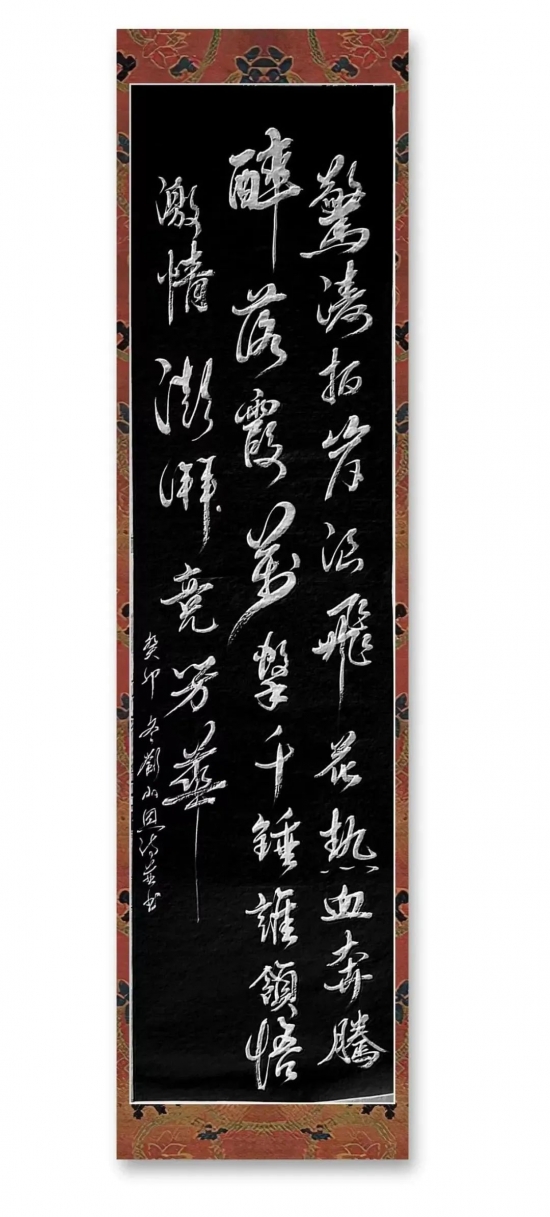 驚濤拍岸浪飛花熱血奔騰
醉落霞萬擊千錘誰領悟
激情澎湃竞芳華
癸卯冬劉小恩詩並书